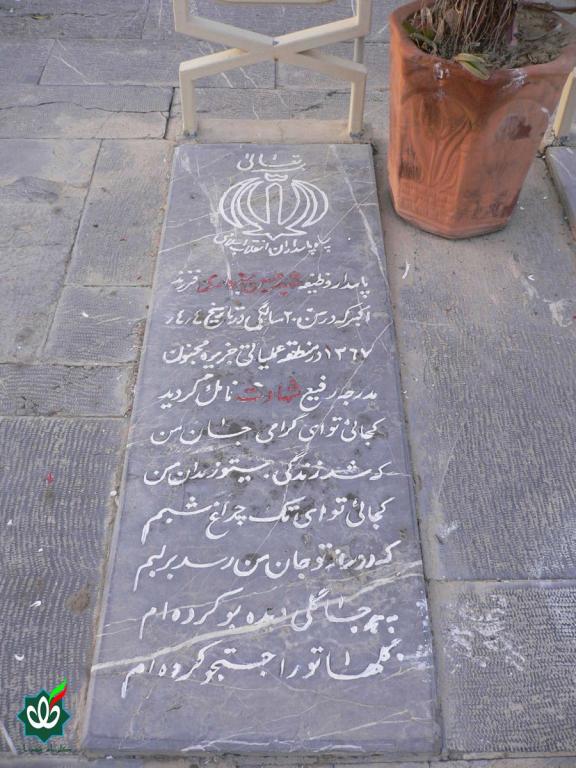 بسمه تعالی
سپاه پاسداران انقلاب اسلامی
پاسدار وظیفه شهید حسین فرزند
اکبر که در سن ۲۰ سالگی در تاریخ ۴/۴/
۱۳۶۷ در منطقه عملیاتی جزیره مجنون
بدرجه رفیع شهادت نائل گردید
کجائی تو ای گرامی جان من
که شد زندگی بیتو زندان من
کجائی تو ای تک چراغ شبم
که دور از تو جان من رسد بر لبم
بهر جا گلی دیده بو کرده ام
بگلها تو را جستجو کرده ام